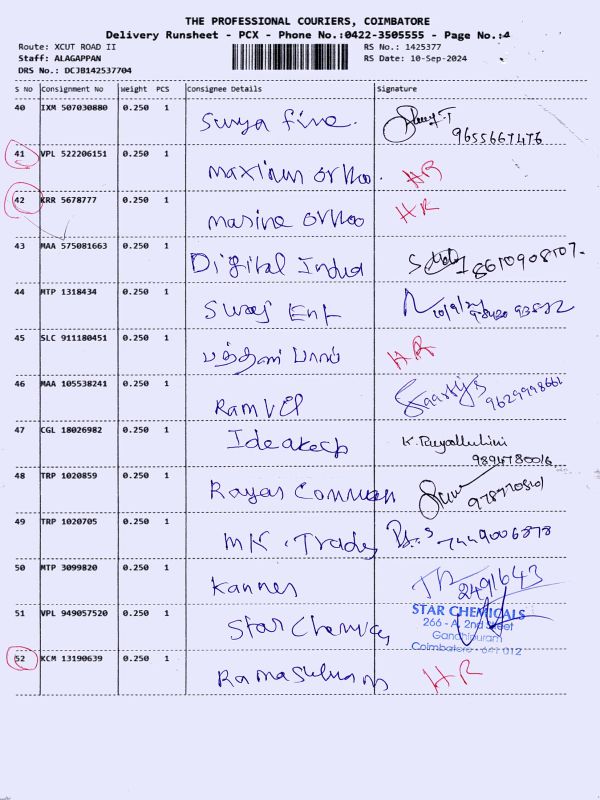 THE PROFESSIONAL COURIERS, COIMBATORE
Delivery Runsheet - PCX - Phone No.:0422-3505555 - Page No.:4
Route: XCUT ROAD II RS No.: 1425377
Staff: ALAGAPPAN RS Date: 10-Sep-2024
DRS No.: DCJB142537704
S No Consignment No Weight PCS Consignee Details Signature
40 IXM 507030880 0.250 1 Surya fine.
9655667476
41 VPL 522206151 0.250 1 maximum ortho. HR
42 KRR 5678777 0.250 1 marine ortho HR
43 MAA 575081663 0.250 1 Digital India 8610908707.
44 MTP 1318434 0.250 1 Suraj Ent 10/9/24
45 SLC 911180451 0.250 1 HR
46 MAA 105538241 0.250 1 Ramvel 9629998661
47 CGL 18026982 0.250 1 Ideakech
9894780016
48 TRP 1020859 0.250 1 Rayas
49 TRP 1020705 0.250 1 MK. Trades 7449006878
50 MTP 3099820 0.250 1 Kannen 2491643
51 VPL 949057520 0.250 1 Star Chemicals STAR CHEMICALS
266 - A, 2nd Street
Gandhipuram
Coimbatore - 641 012
52 KCM 13190639 0.250 1 HR